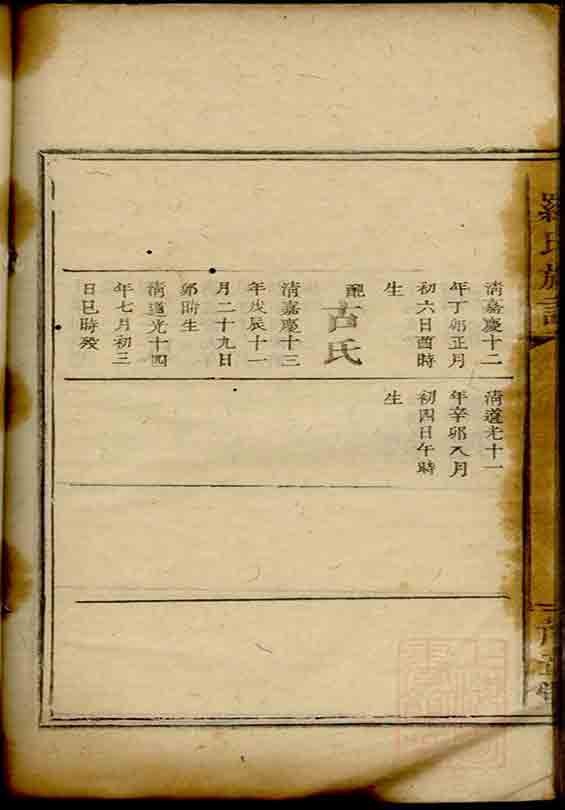 羅氏族譜
清嘉慶十二
年丁卯正月
初六日酉時
生
配古氏
清嘉慶十三
年戊辰十一
月二十九日
卯時生
清道光十四
年七月初三
日巳時殁
清道光十一
年辛卯八月
初四日午時
生